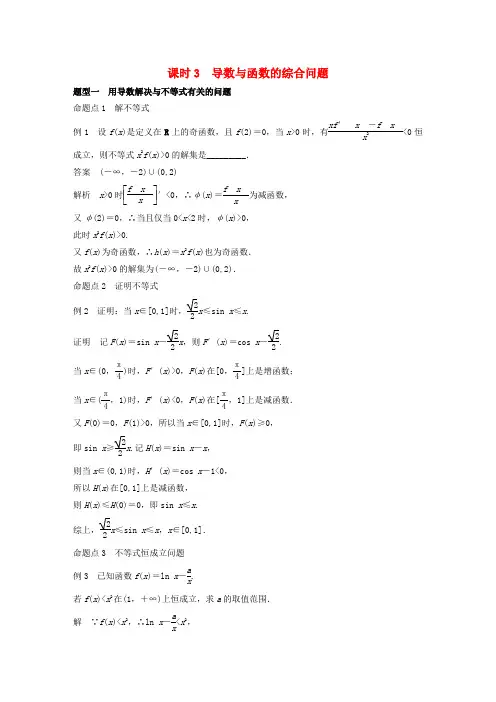 课时3 导数与函数的综合问题
题型一 用导数解决与不等式有关的问题
命题点1 解不等式
例1 设f(x)是定义在R上的奇函数,且f(2)=0,当x>0时,有\frac{xf′ x -f x}{x^2}<0恒
成立,则不等式x²f(x)>0的解集是________.
答案 (-∞,-2)∪(0,2)
解析 x>0时[\frac{f x}{x}]′<0,∴φ(x)=\frac{f x}{x}为减函数,
又φ(2)=0,∴当且仅当0<x<2时,φ(x)>0,
此时x²f(x)>0.
又f(x)为奇函数,∴h(x)=x²f(x)也为奇函数.
故x²f(x)>0的解集为(-∞,-2)∪(0,2).
命题点2 证明不等式
例2 证明:当x∈[0,1]时,\frac{\sqrt{2}}{2}x≤sin x≤x.
证明 记F(x)=sin x-\frac{\sqrt{2}}{2}x,则F′(x)=cos x-\frac{\sqrt{2}}{2}.
当x∈(0,\frac{π}{4})时,F′(x)>0,F(x)在[0,\frac{π}{4}]上是增函数;
当x∈(\frac{π}{4},1)时,F′(x)<0,F(x)在[\frac{π}{4},1]上是减函数.
又F(0)=0,F(1)>0,所以当x∈[0,1]时,F(x)≥0,
即sin x≥\frac{\sqrt{2}}{2}x.记H(x)=sin x-x,
则当x∈(0,1)时,H′(x)=cos x-1<0,
所以H(x)在[0,1]上是减函数,
则H(x)≤H(0)=0,即sin x≤x.
综上,\frac{\sqrt{2}}{2}x≤sin x≤x,x∈[0,1].
命题点3 不等式恒成立问题
例3 已知函数f(x)=ln x-\frac{a}{x}.
若f(x)<x²在(1,+∞)上恒成立,求a的取值范围.
解 ∵f(x)<x²,∴ln x-\frac{a}{x}<x²,